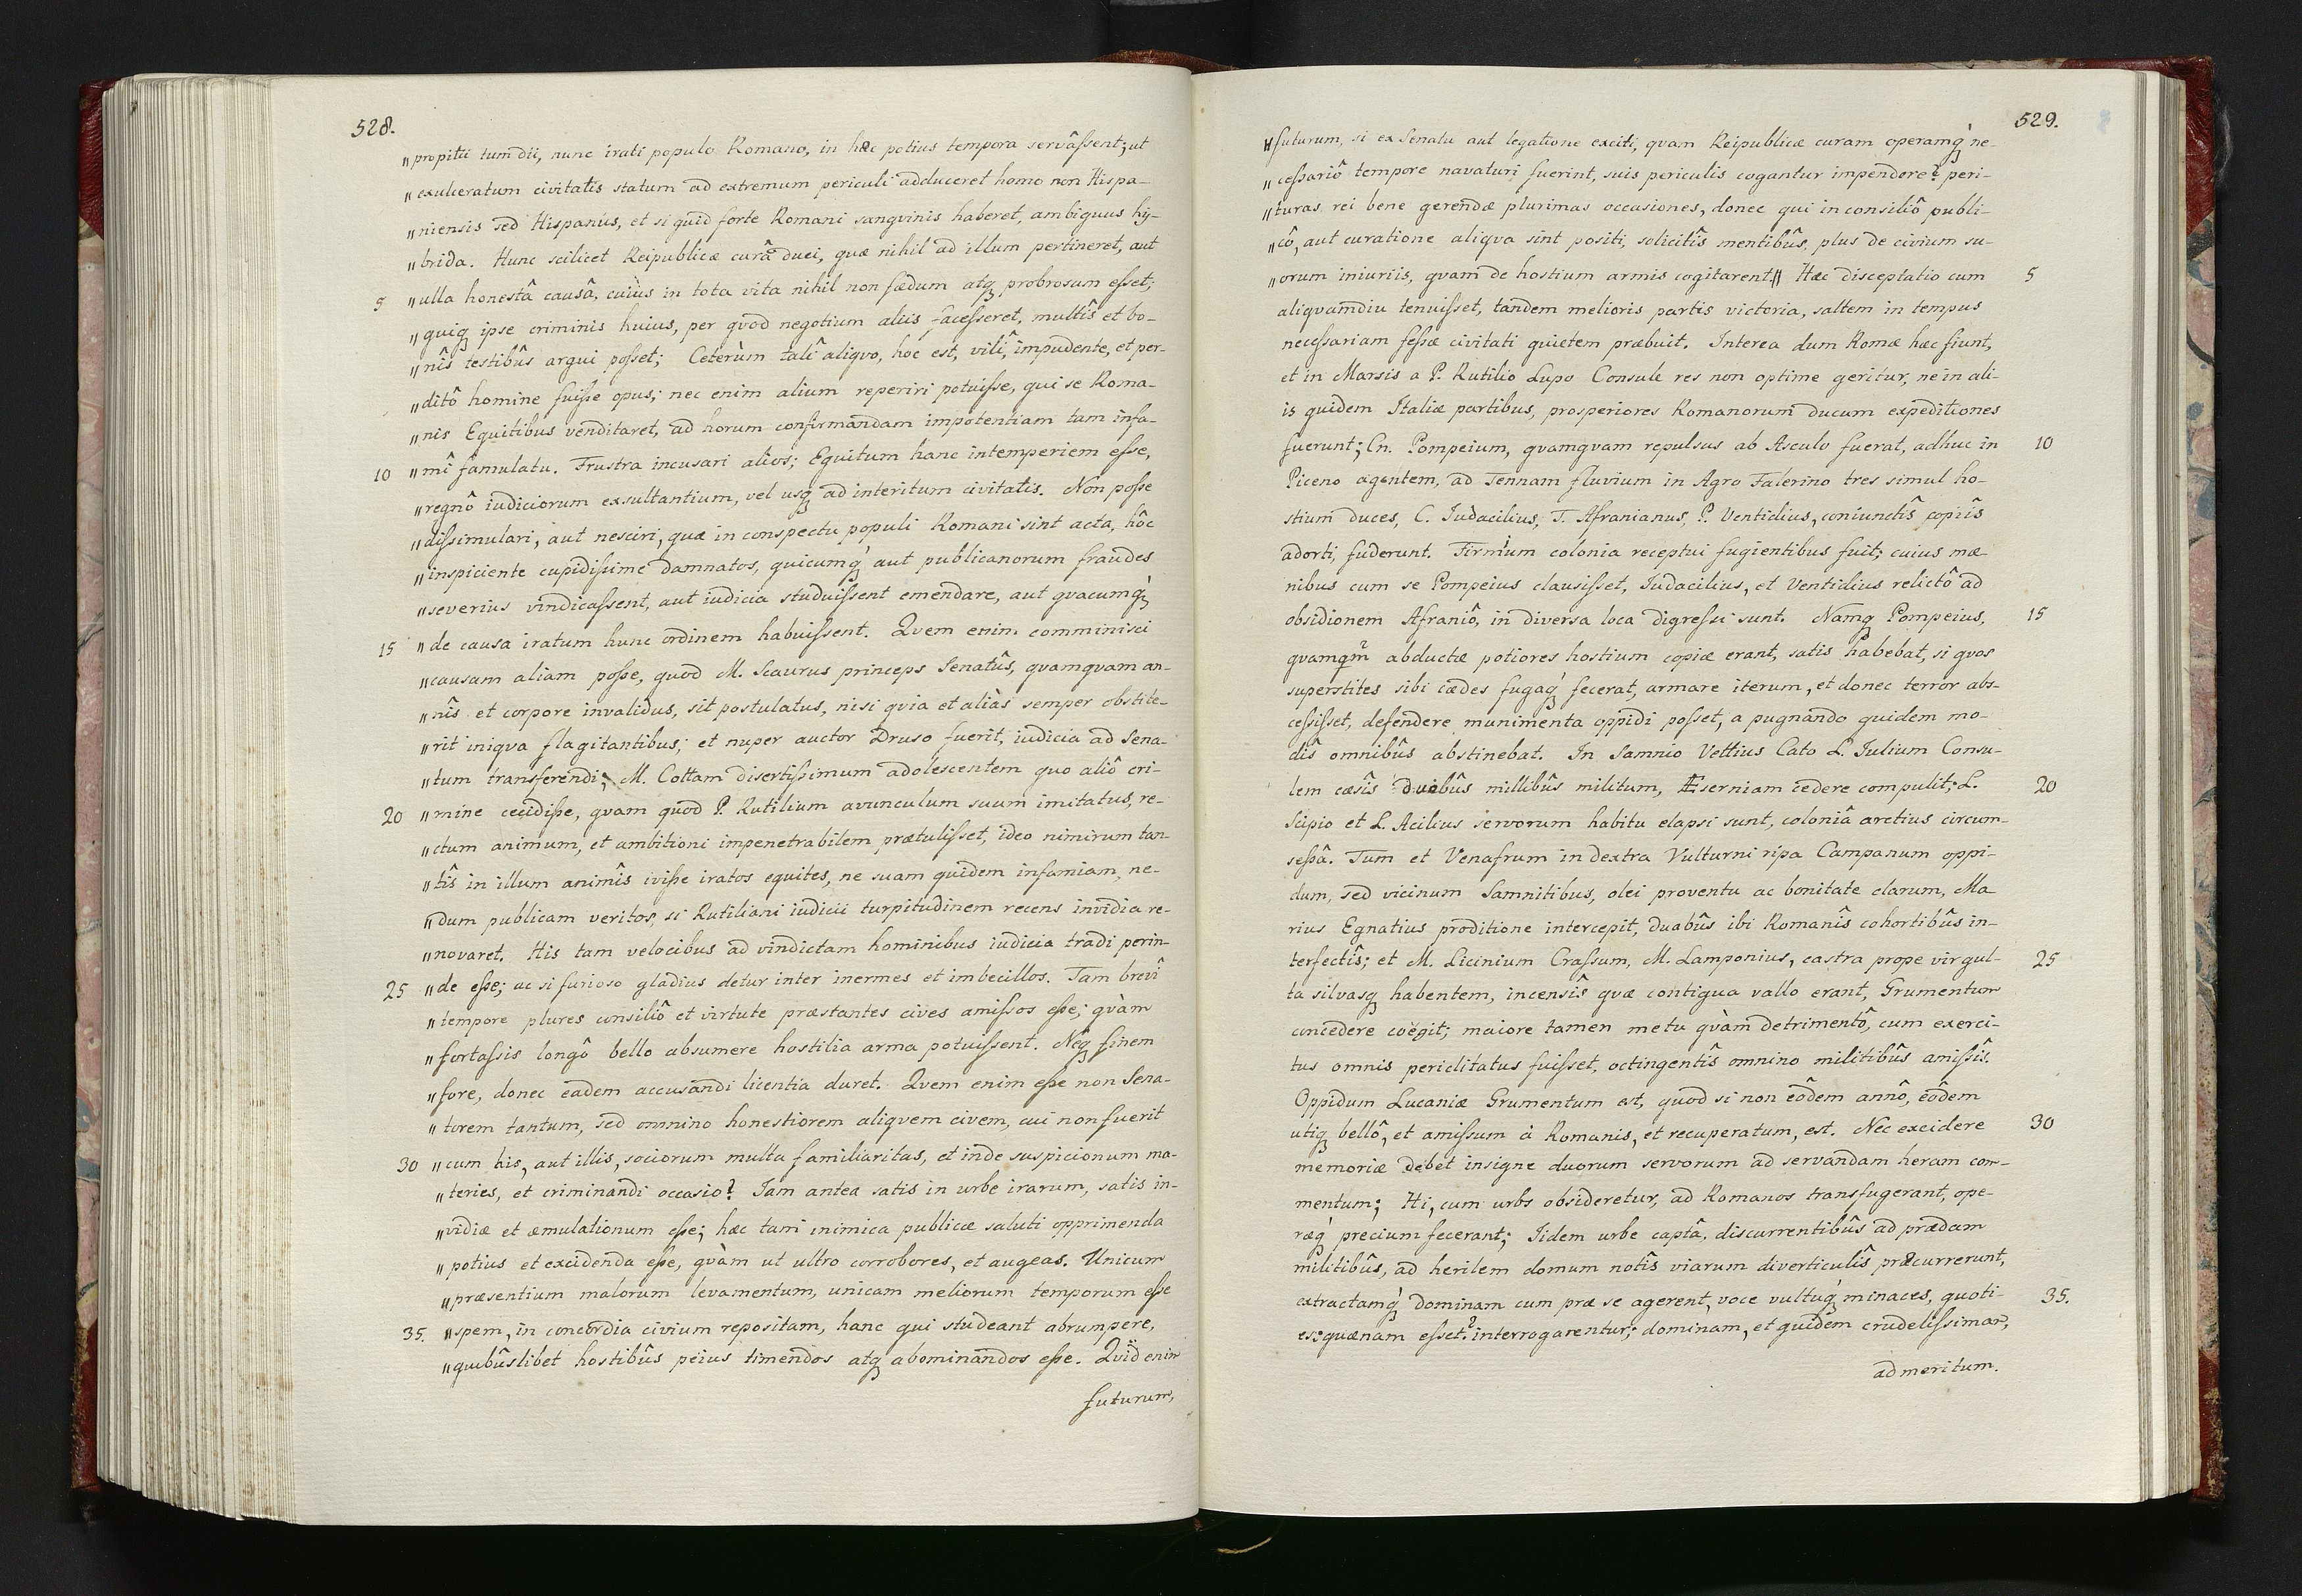 528.
„propitii tum dii, nunc irati populo Romano, in hæc potius tempora servâssent; ut
„exulceratum civitatis statum ad extremum periculi adduceret homo non Hispa-
„niensis sed Hispanus, et si quid forte Romani sangvinis haberet, ambiguus hy-
„brida. Hunc scilicet Reipublicæ curâ duci, quæ nihil ad illum pertineret, aut
5 „ulla honestâ causâ, cuiùs in tota vita nihil non fœdum atq probrosum esset;
„quiq ipse criminis huius, per qvod negotium aliis facesseret, multîs et bo-
„nîs testibûs argui posset; Ceterùm talî aliqvo, hoc est, vilî, impudente, et per-
„ditô homine fuisse opus; nec enim alium reperiri potuisse, qui se Roma-
„nis Equitibus venditaret, ad horum confirmandam impotentiam tam infa-
10 „mî famulatu. Frustra incusari alios; Equitum hanc intemperiem esse,
„regnô iudiciorum exsultantium, vel usq ad interitum civitatis. Non posse
„dissimulari, aut nesciri, quæ in conspectu populi Romani sint acta, hôc
„inspiciente cupidissime damnatos, quicumq́ aut publicanorum fraudes
„severius vindicassent, aut iudicia studuissent emendare, aut qvacumq́
15 „de causa iratum hunc ordinem habuissent. Qvem enim comminisci
„causam aliam posse, quod M. Scaurus princeps Senatûs, qvamqvam an-
„nîs et corpore invalidus, sit postulatus, nisi qvia et aliàs semper obstite-
„rit iniqva flagitantibus; et nuper auctor Druso fuerit, iudicia ad Sena-
„tum transferendi; M. Cottam disertissimum adolescentem quo aliô cri-
20 „mine cecidisse, qvam quod P. Rutilium avunculum suum imitatus, re-
„ctum animum, et ambitioni impenetrabilem prætulisset, ideo nimirum tan-
„tîs in illum animîs ivisse iratos equites, ne suam quidem infamiam, ne-
„dum publicam veritos, si Rutiliani iudicii turpitudinem recens invidia re-
„novaret. His tam velocibus ad vindictam hominibus iudicia tradi perin-
25 „de esse; ac si furioso gladius detur inter inermes et imbecillos. Tam brevî
„tempore plures consiliô et virtute præstantes cives amissos esse; qvàm
„fortassis longô bello absumere hostilia arma potuissent. Neq finem
„fore, donec eadem accusandi licentia duret. Qvem enim esse non Sena-
„torem tantum, sed omnino honestiorem aliqvem civem, cui non fuerit
30 „cum his, aut illis, sociorum multa familiaritas, et inde suspicionum ma-
„teries, et criminandi occasio? Iam antea satis in urbe irarum, satis in-
„vidiæ et æmulationum esse; hæc tam inimica publicæ saluti opprimenda
„potius et excidenda esse, qvàm ut ultro corrobores, et augeas. Unicum
„præsentium malorum levamentum, unicam meliorum temporum esse
35. „spem, in concordia civium repositam, hanc qui studeant abrumpere,
„quibûslibet hostibûs peius timendos atq abominandos esse. Qvid enim
futurum,
529.
„futurum, si ex Senatu aut legatione exciti, qvam Reipublicæ curam operamq́ ne-
„cessariô tempore navaturi fuerint, suis periculis cogantur impendere? peri-
„turas rei bene gerendæ plurimas occasiones, donec qui in consiliô publi-
„cô, aut curatione aliqva sint positi, solicitîs mentibûs, plus de civium su-
„orum iniuriis, qvam de hostium armis cogitarent„ Hæc disceptatio cum 5
aliqvamdiu tenuisset, tandem melioris partis victoria, saltem in tempus
necessariam fessæ civitati quietem præbuit. Interea dum Romæ hæc fiunt,
et in Marsis a P. Rutilio Lupo Consule res non optime geritur, ne in ali-
is quidem Italiæ partibus, prosperiores Romanorum ducum expeditiones
fuerunt; Cn. Pompeium, qvamqvam repulsus ab Asculo fuerat, adhuc in 10
Piceno agentem, ad Tennam fluvium in Agro Falerino tres simul ho-
stium duces, C. Iudacilius, T. Afranianus, P. Ventidius, coniunctîs copiîs
adorti, fuderunt. Firmium colonia receptui fugientibus fuit; cuius mœ
nibus cum se Pompeius clausisset, Iudacilius, et Ventidius relictô ad
obsidionem Afraniô, in diversa loca digressi sunt. Namq Pompeius, 15
qvamqm̃ abductæ potiores hostium copiæ erant, satis habebat, si qvos
superstites sibi cædes fugaq́ fecerat, armare iterum, et donec terror abs-
cessisset, defendere munimenta oppidi posset, a pugnando quidem mo-
dîs omnibûs abstinebat. In Samnio Vettius Cato L. Iulium Consu-
lem cæsîs duobûs millibûs militum, Æserniam cedere compulit; L. 20
Scipio et L. Acilius servorum habitu elapsi sunt, coloniâ arctius circum-
sessâ. Tum et Venafrum in dextra Vulturni ripa Campanum oppi-
dum, sed vicinum Samnitibus, olei proventu ac bonitate clarum, Ma
rius Egnatius proditione intercepit, duabûs ibi Romanîs cohortibûs in-
terfectîs; et M. Licinium Crassum, M. Lamponius, castra prope virgul- 25
ta silvasq habentem, incensîs qvæ contigua vallo erant, Grumentum
concedere coëgit; maiore tamen metu qvàm detrimentô, cum exerci-
tus omnis periclitatus fuisset, octingentîs omnino militibûs amissîs.
Oppidum Lucaniæ Grumentum est, quod si non eôdem annô, eôdem
utiq bellô, et amissum à Romanis, et recuperatum, est. Nec excidere 30
memoriæ debet insigne duorum servorum ad servandam heram com-
mentum; Hi, cum urbs obsideretur, ad Romanos transfugerant, ope-
ræq́ precium fecerant; Iidem urbe captâ, discurrentibûs ad prædam
militibûs, ad herilem domum notîs viarum diverticulîs præcurrerunt,
extractamq́ dominam cum præ se agerent, voce vultuq́ minaces, quoti- 35.
es: quænam esset? interrogarentur; dominam, et quidem crudelissimam,
ad meritum.